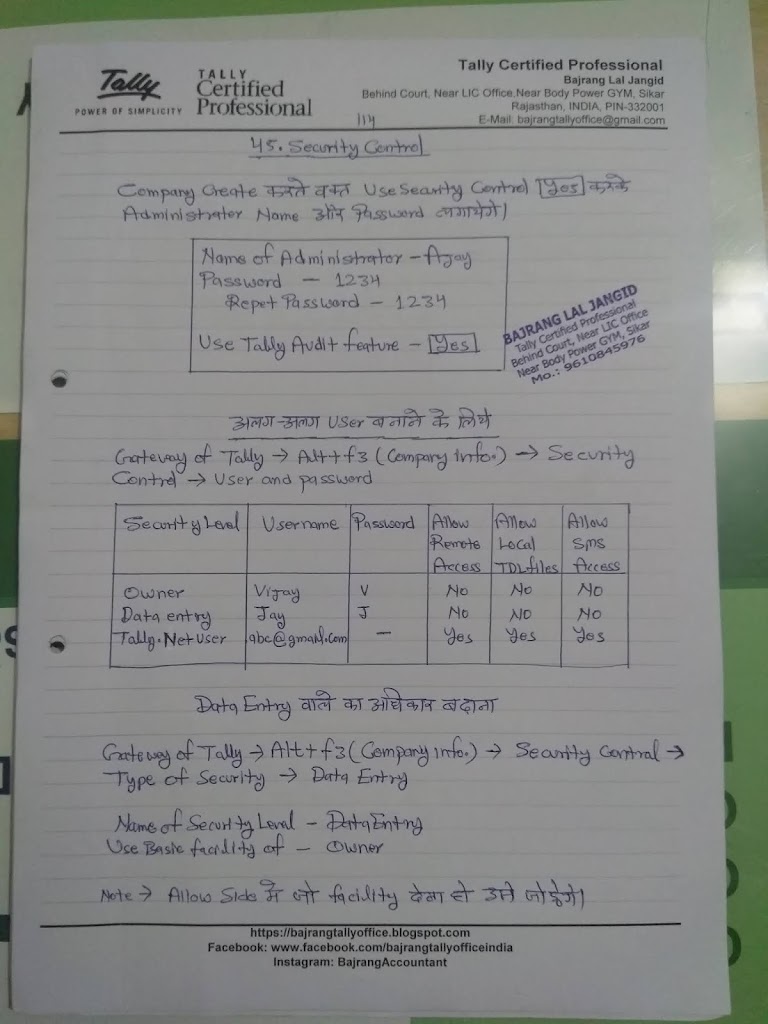 Tally
POWER OF SIMPLICITY
TALLY
Certified
Professional
Tally Certified Professional
Bajrang Lal Jangid
Behind Court, Near LIC Office,Near Body Power GYM, Sikar
Rajasthan, INDIA, PIN-332001
E-Mail: bajrangtallyoffice@gmail.com
114
45. Security Control
Company Create करते वक्त Use Security Control Yes करके
Administrator Name और Password लगायेगे।
Name of Administrator - Ajay
Password - 1234
Repet Password - 1234
Use Tally Audit feature - Yes
BAJRANG LAL JANGID
Tally Certified Professional
Behind Court, Near LIC Office
Near Body Power GYM, Sikar
Mo.: 9610845976
अलग-अलग User बनाने के लिये
Gateway of Tally → Alt+f3 (Company info.) → Security
Control → User and password
Security Level Username Password Allow Remote Access Allow Local TDL files Allow SMS Access
Owner Vijay V No No No
Data entry Jay J No No No
Tally.Net User abc@gmail.com - Yes Yes Yes
Data Entry वाले का अधिकार बढाना
Gateway of Tally → Alt+f3 (Company info.) → Security Control →
Type of Security → Data Entry
Name of Security Level - Data Entry
Use Basic facility of - Owner
Note → Allow Side में जो facility देना हो उसे जोड़ेगे।
https://bajrangtallyoffice.blogspot.com
Facebook: www.facebook.com/bajrangtallyofficeindia
Instagram: BajrangAccountant